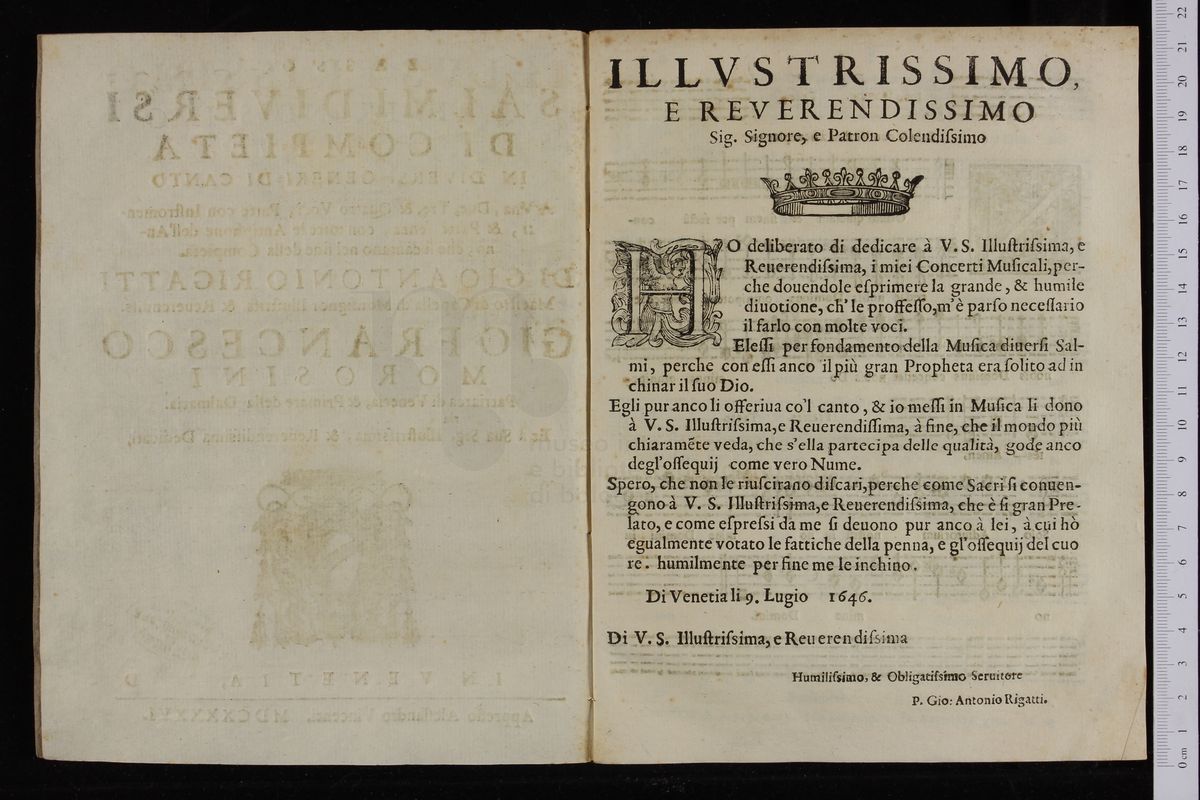 ILLVSTRISSIMO,
E REVERENDISSIMO
Sig. Signore, e Patron Colendiſsimo
HO deliberato di dedicare à V. S. Illuſtriſsima, e
Reuerendiſsima, i miei Concerti Muſicali, per-
che douendole eſprimere la grande, & humile
diuotione, ch' le proffeſſo, m'è parſo neceſſario
il farlo con molte voci.
Eleſſi per fondamento della Muſica diuerſi Sal-
mi, perche con eſſi anco il più gran Propheta era ſolito ad in
chinar il ſuo Dio.
Egli pur anco li offeriua co'l canto, & io meſſi in Muſica li dono
à V. S. Illuſtriſsima, e Reuerendiſſima, à fine, che il mondo più
chiaramẽte veda, che s'ella partecipa delle qualità, gode anco
degl'oſſequij come vero Nume.
Spero, che non le riuſcirano diſcari, perche come Sacri ſi conuen-
gono à V. S. Illuſtriſsima, e Reuerendiſsima, che è ſi gran Pre-
lato, e come eſpreſsi da me ſi deuono pur anco à lei, à cui hò
egualmente votato le fattiche della penna, e gl'oſſequij del cuo
re. humilmente per fine me le inchino.
Di Venetia li 9. Lugio 1646.
Di V. S. Illuſtriſsima, e Reuerendiſsima
Humiliſsimo, & Obligatiſsimo Seruitore
P. Gio: Antonio Rigatti.